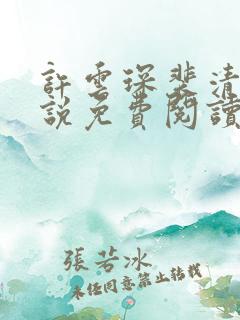 許雲琛裴清
說免費閱讀
張若冰
未經同意禁止轉載